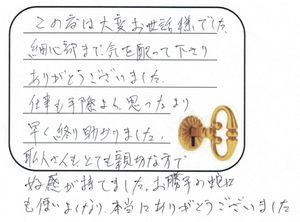 この度は大変お世話様でした。
細い部まで気を配って下さり
ありがとうございました。
仕事も手際よく思ったより
早く終り助かりました。
職人さんもとても親切な方で
好感が持てました。お勝手の蛇口
も使いよくなり、本当にありがとうございました